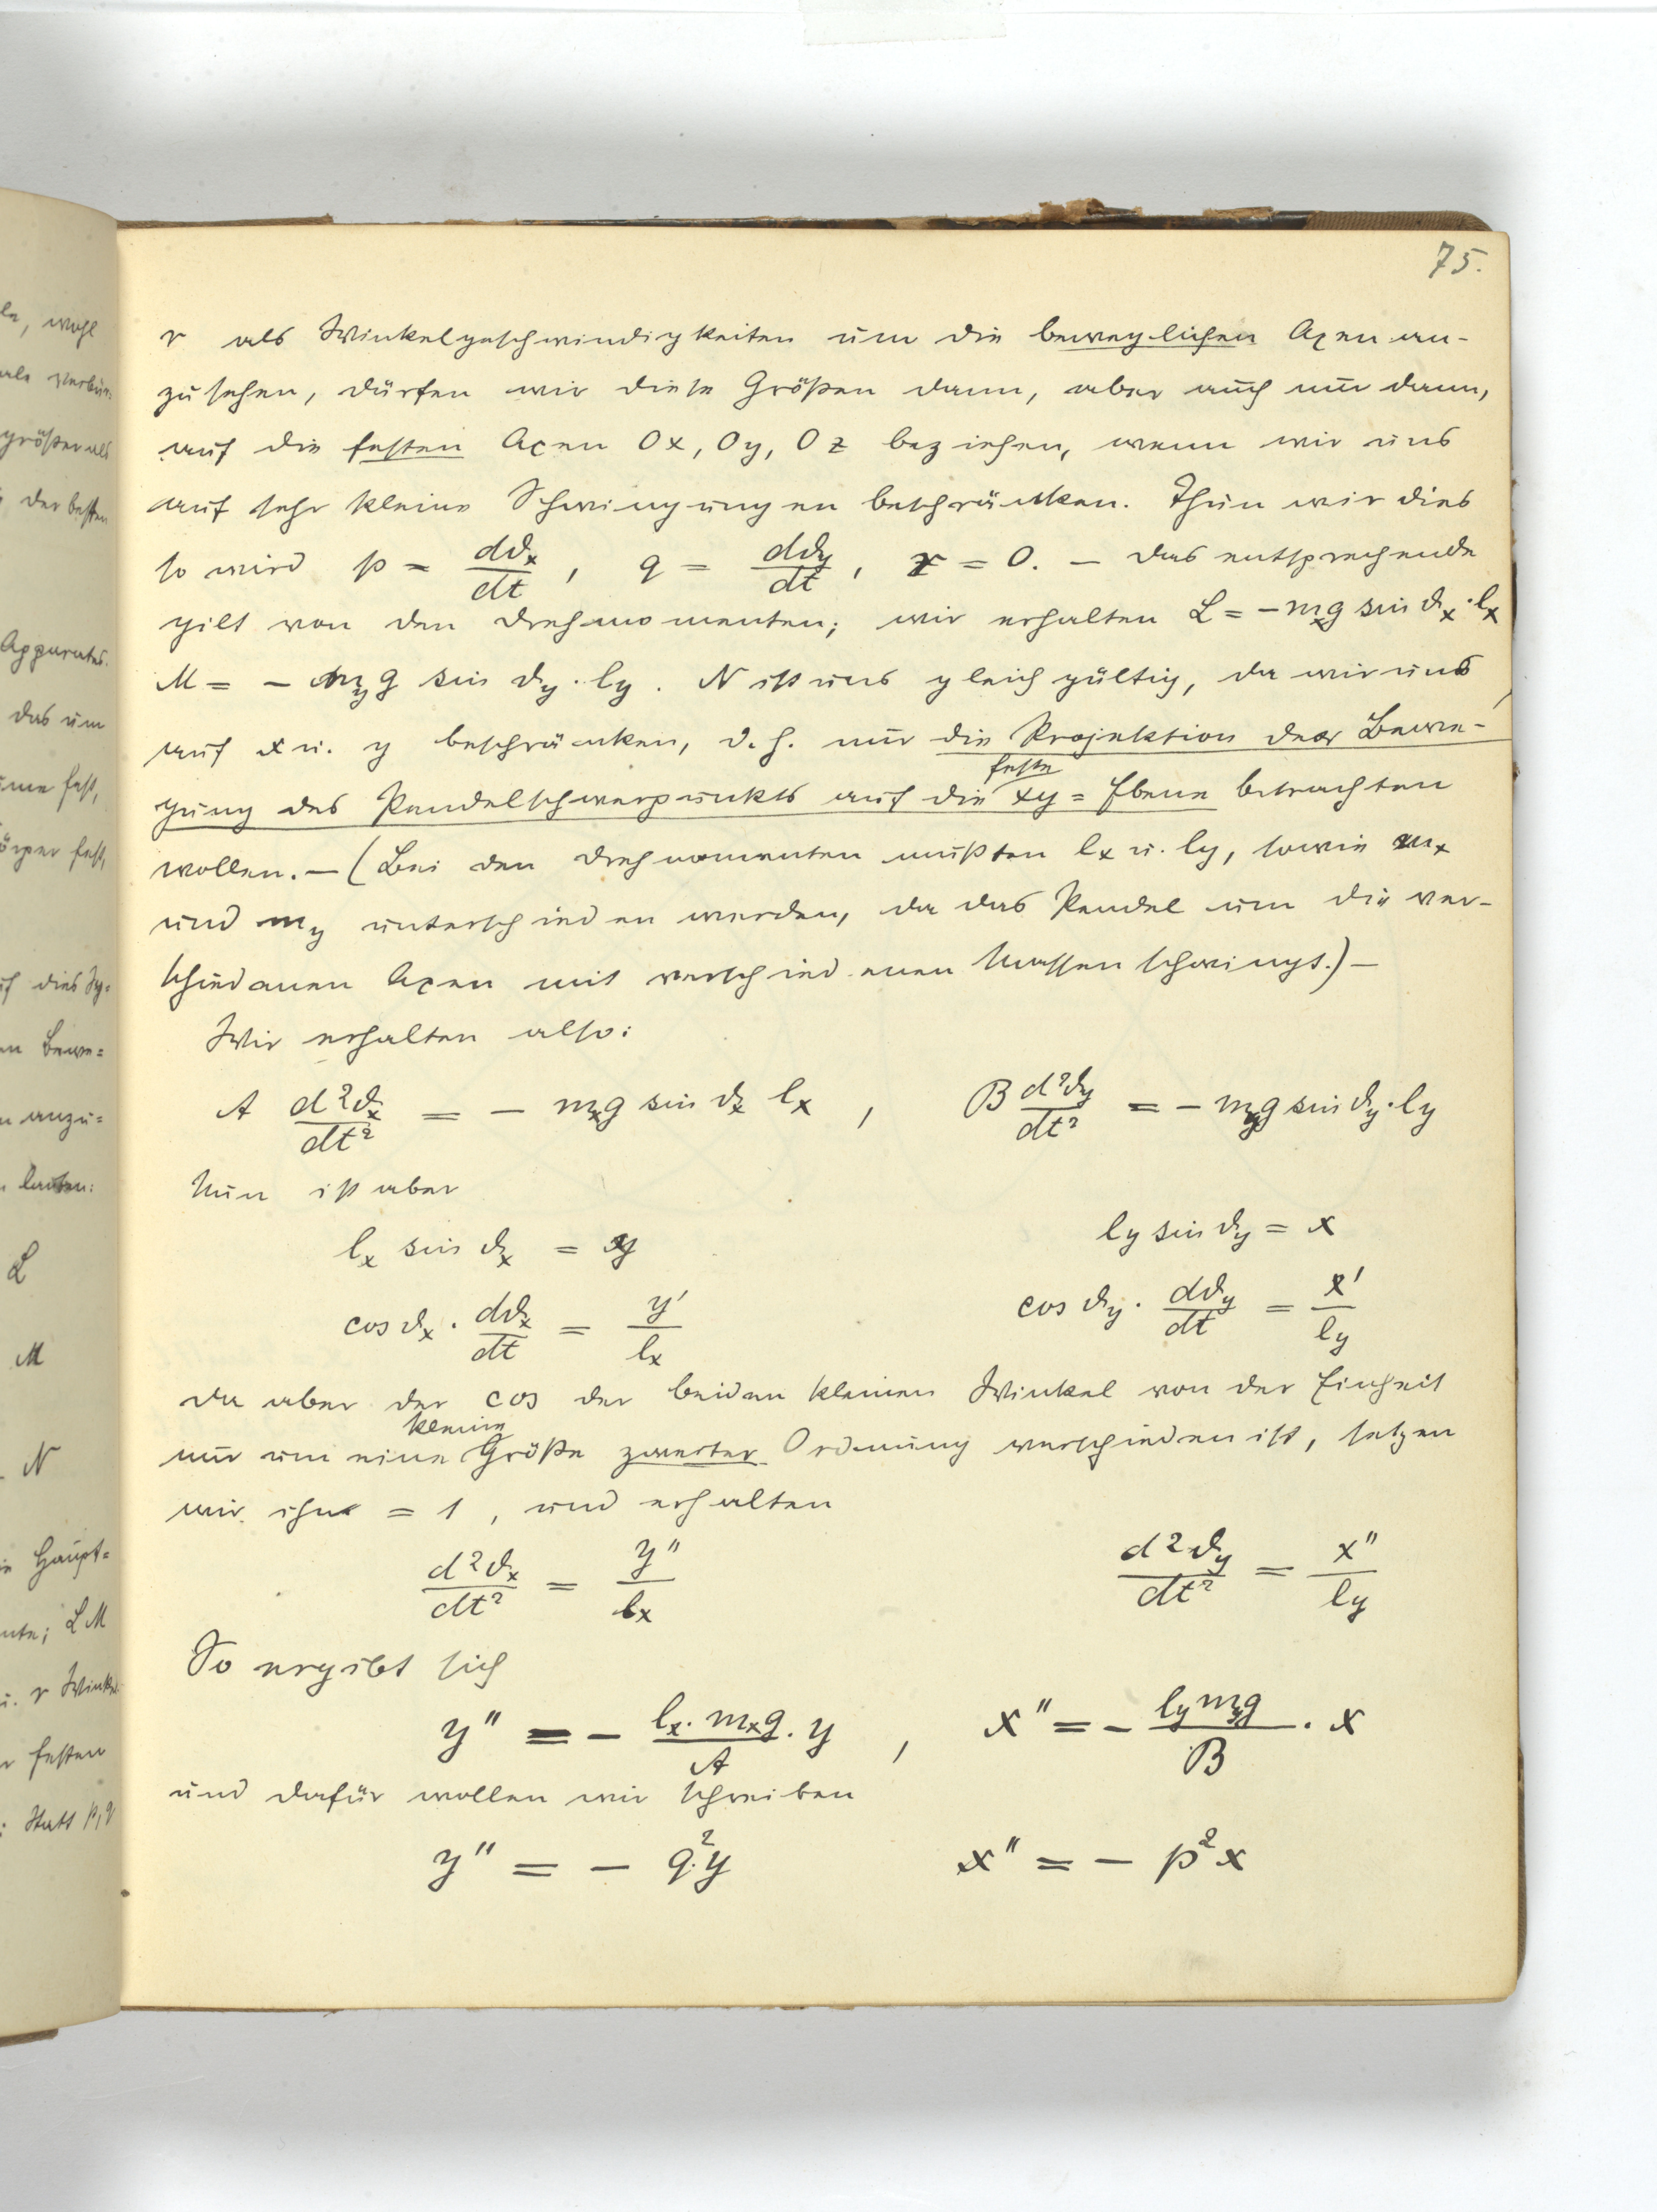 75.
r als Winkelgeschwindigkeiten um die beweglichen Axen an-
zusehen, dürfen wir diese Größen dann, aber auch nur dann,
auf die festen Axen Ox, Oy, Oz beziehen, wenn wir uns
auf sehr kleine Schwingungen beschränken. Thun wir dies
so wird p = dϑx/dt, q = dϑy/dt, r = 0. — Das entsprechende
gilt von den Drehmomenten; wir erhalten L = − mxg sin ϑx · lx
M = − myg sin ϑy · ly. N ist uns gleichgültig, da wir uns
auf x u. y beschränken, d. h. nur die Projektion der Bewe-
feste
gung des Pendelschwerpunkts auf die xy = Ebene betrachten
wollen. — (Bei den Drehmomenten mußten lx u. ly, sowie mx
und my unterschieden werden, da das Pendel um die ver-
schiedenen Axen mit verschiedenen Massen schwingt.) —
Wir erhalten also:
A d²ϑx/dt² = − mxg sin ϑx lx, B d²ϑy/dt² = − myg sin ϑy · ly
Nun ist aber
lx sin ϑx = y ly sin ϑy = x
cos ϑx · dϑx/dt = y'/lx cos ϑy · dϑy/dt = x'/ly
Da aber der cos der beiden kleinen Winkel von der Einheit
kleine
nur um eine Größe zweiter Ordnung verschieden ist, setzen
wir ihn = 1, und erhalten
d²ϑx/dt² = y''/lx d²ϑy/dt² = x''/ly
So ergibt sich
y'' = − lx · mxg/A · y, x'' = − ly myg/B · x
und dafür wollen wir schreiben
y'' = − q²y x'' = − p²x
wohl
größer als
der besten
Apparates.
das um
fest,
fest,
Bewe=
anzu=
lauten:
L
M
N
Haupt=
L M
u. r
festen
Statt p, q